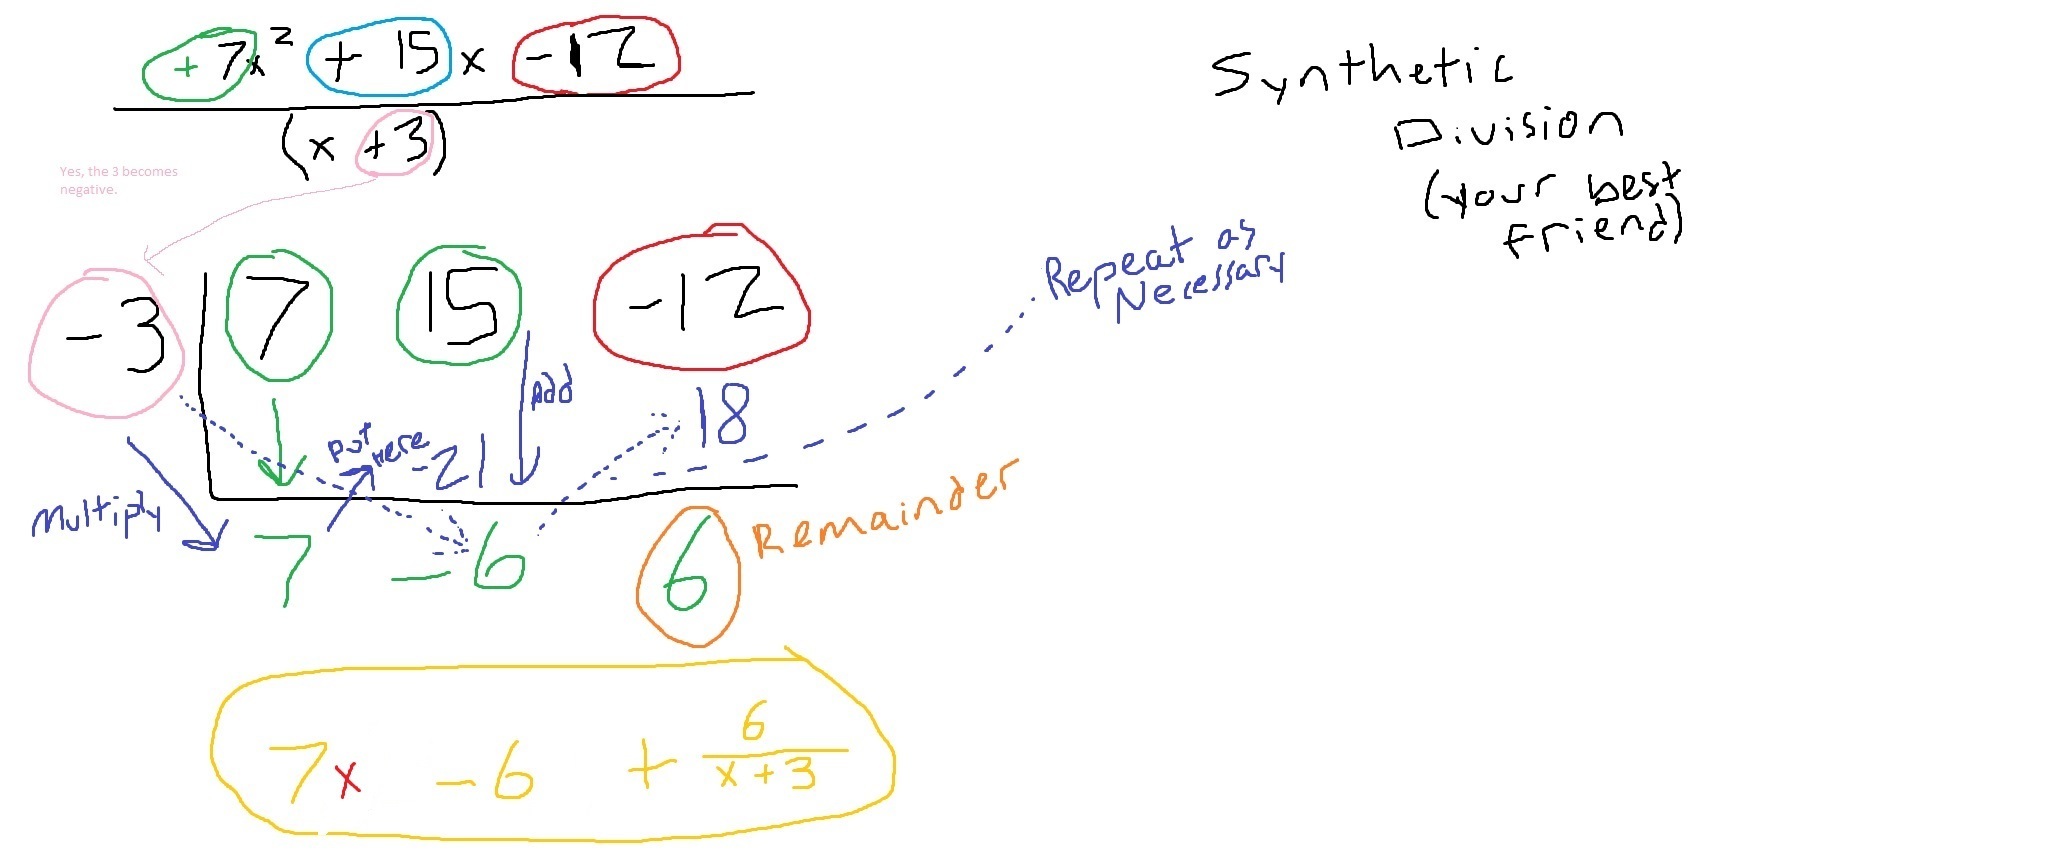 +7x² + 15x -12
(x +3)
Yes, the 3 becomes
negative.
Synthetic
Division
(your best
friend)
-3 7 15 -12
Repeat as
Necessary
Add
18
Put Here -21
Multiply
7 -6 6 Remainder
7x -6 + 6
x + 3